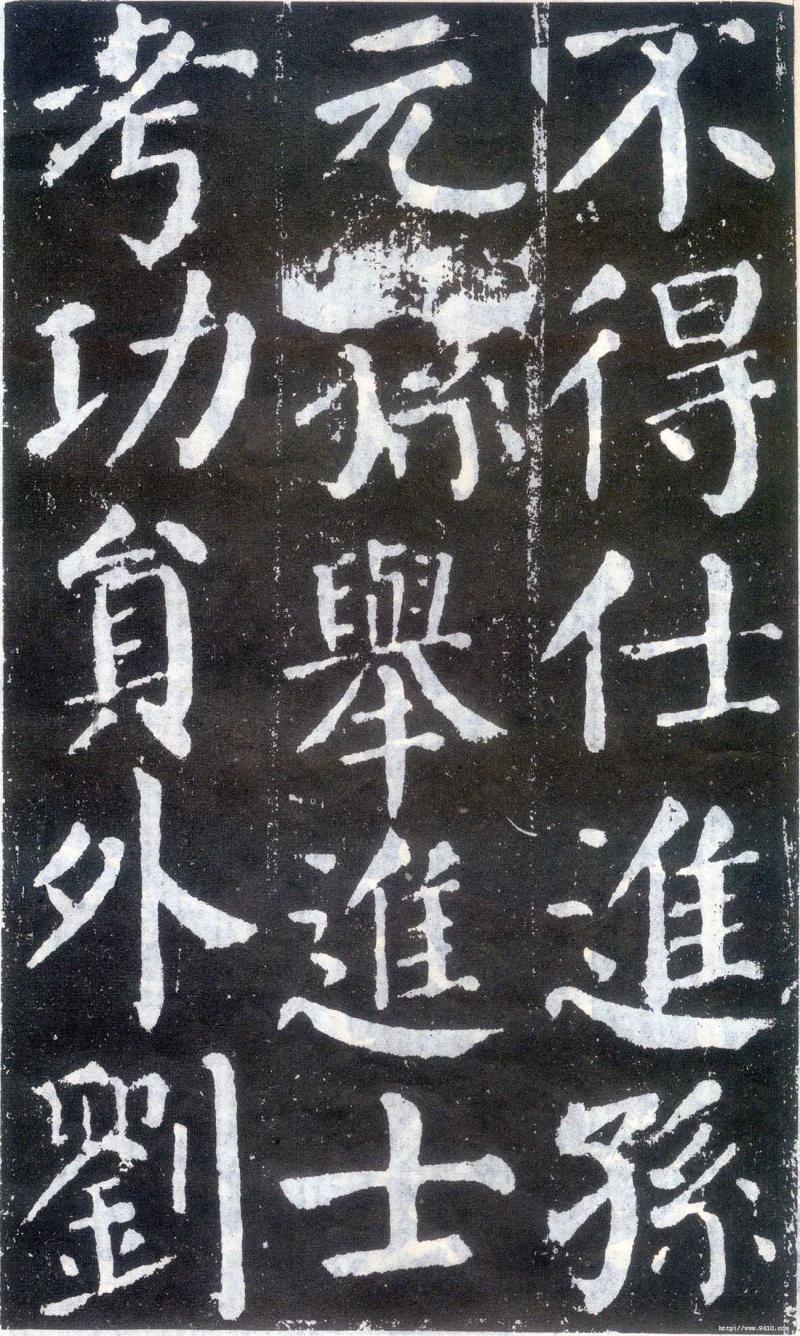 不得仕進孫
元孫舉進士
考功貟外劉
http://www.9610.com